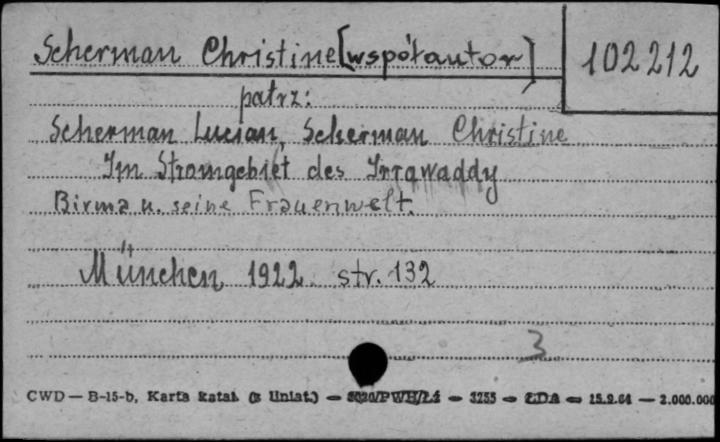 Scherman Christine [współautor]
102212
patrz:
Scherman Lucian, Scherman Christine
Im Stromgebiet des Irrawaddy
Birma u. seine Frauenwelt.
München 1922 str. 132
3
CWD — B-15-b, Karta katal. (z liniat.) — 3020/PWH/Łź — 3255 — ŁDA — 15.9.64 — 2.000.000